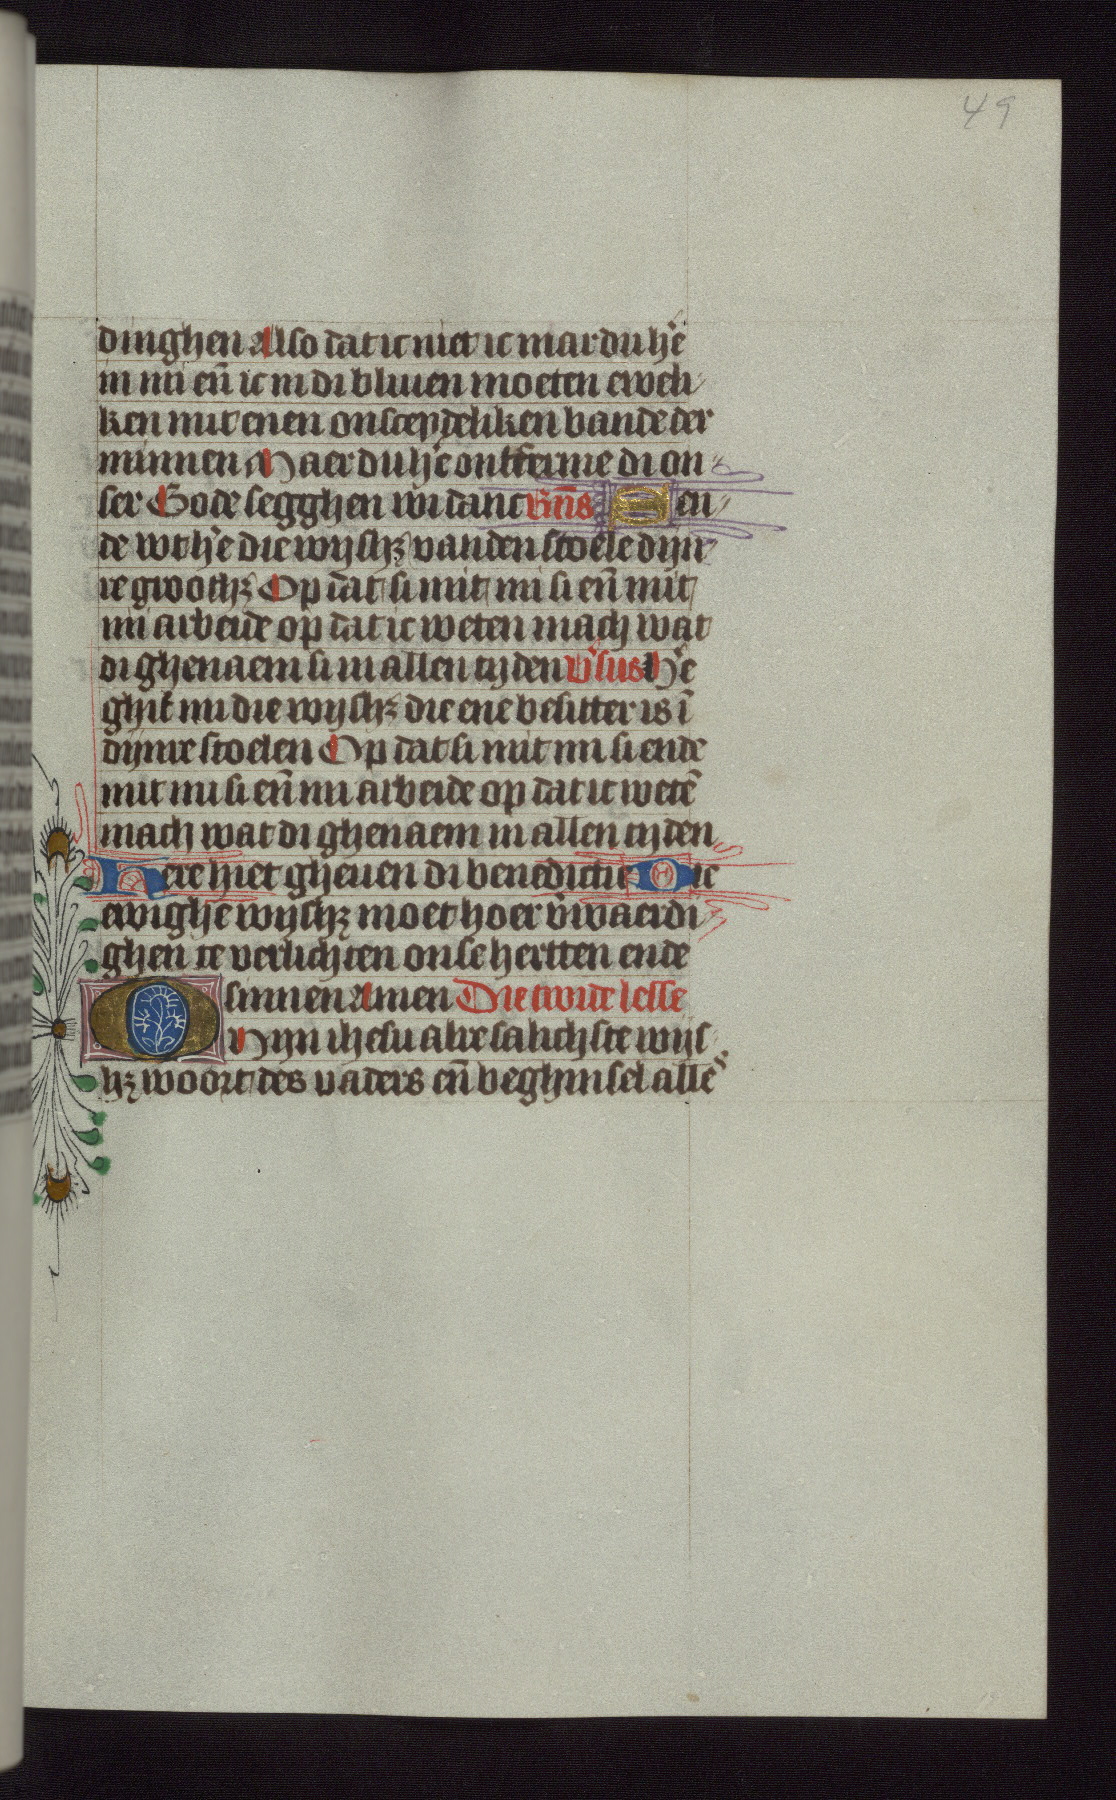 49
dinghen Also dat ic niet ic mar du he͛
in mi en̄ ic in di bliuen moeten eweli
ken mit enen onsceydeliken bande der
minnen Maer du he͛ ontfermie di on
ser Gode segghen wi danc Rn̄s Sen
de wt he͛ die wyshꝫ vanden stoele dijn
re grootꝫ Op dat si mit mi si en̄ mit
mi arbeide op dat ic weten mach wat
di ghenaem si in allen tyden v͛sus He͛
ghif mi die wyshꝫ die ene besitter is ī
dijnre stoelen Op dat si mit mi si ende
mit mi si en̄ mi arbeide op dat ic wetē
mach wat di ghenaem in allen tyden
Here hiet gheuen di benedictie Die
ewighe wyshꝫ moet hoer v̄waerdi
ghen te verlichten onse hertten ende
sinnen Amen Die twide lesse
O Mijn ihesu alre salichste wijs
hꝫ woort des vaders en̄ beghinsel alle͛